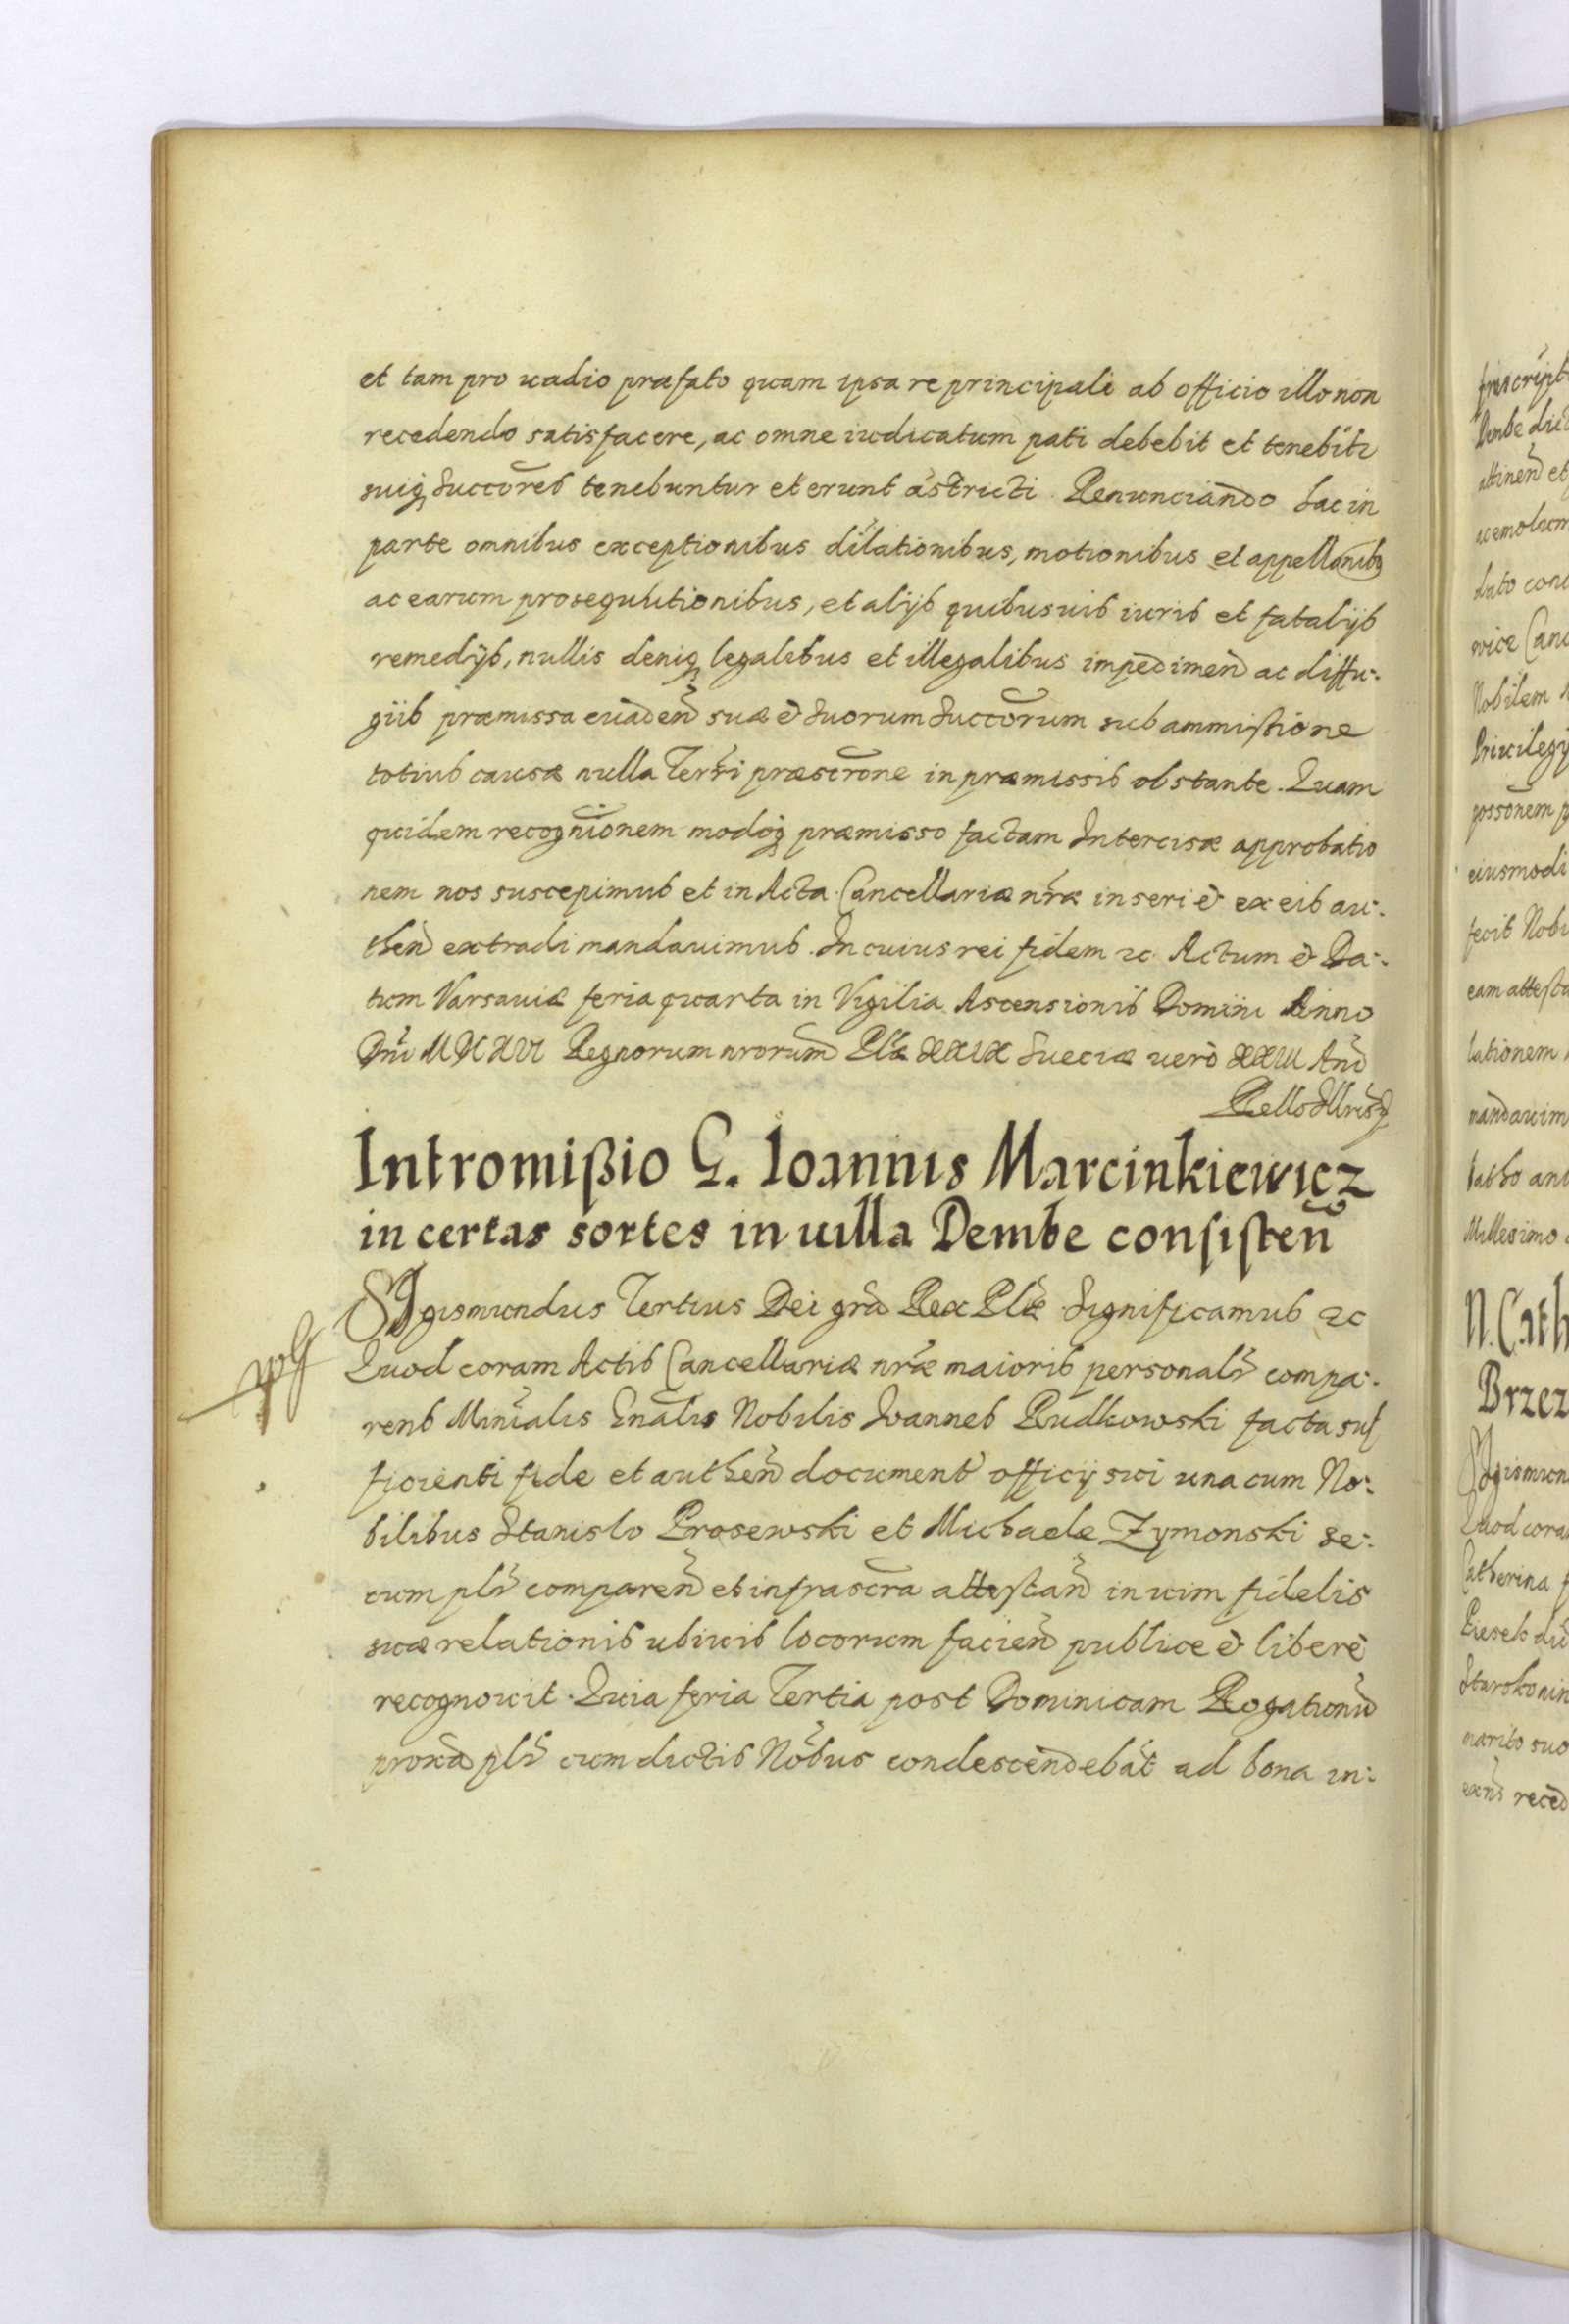 et tam pro uadio præfato quam ipsa re principali ab officio illo non
recedendo satisfacere, ac omne iudicatum pati debebit et tenebitr
suiq succores tenebuntur et erunt astricti. Renunciando hac in
parte omnibus exceptionibus dilationibus, motionibus et appellanibq
ac earum prosequutionibus, et alijs quibusuis iuris et fatalijs
remedijs, nullis deniq legalibus et illegalibus impedimen ac diffu:
giis præmissa euaden suæ & suorum succorum sub ammissione
totius causæ nulla Terrri præscrone in præmissis obstante. Quam
quidem recognionem modoq præmisso factam Intercisæ approbatio
nem nos suscepimus et in Acta Cancellariæ nræ inseri & ex eis au:
then extradi mandauimus. In cuius rei fidem 2c Actum & Da:
tum Varsauiæ feria quarta in Vigilia Ascensionis Domini Anno
Dni MDCXVI Regnorum nrorum Plæ XXIX Sueciæ uero XXIII Ano
Intromißio G. Ioannis Marcinkiewicz
in certas sortes in uilla Dembe consisten
Sigismundus Tertius Dei gra Rex Plæ Significamus 2c
Quod coram Actis Cancellariæ nræ maioris personalr compa:
rens Minialis Gnalis Nobilis Ioannes Rudkowski facta suf
ficienti fide et authen document officij sui una cum No:
bilibus Stanislo Prosewski et Michaele Zymonski se:
cum plr comparen et infrascra attestan in uim fidelis
suæ relationis ubiuis locorum facien publice & libere
recognouit. Quia feria Tertia post Dominicam Rogationu
proxa plr cum dictis Nobus condescendebat ad bona in:
præscript
Dembe dict
attinen et
dato con
vice Canc
Nobilem
Priuilegy
possonem p
eiusmodi
fecit Nobi
eam attesta
lationem
mandauim
Millesimo
N. Cath
Brzez
Sigismun
Quod cora
Catherina
marito suo